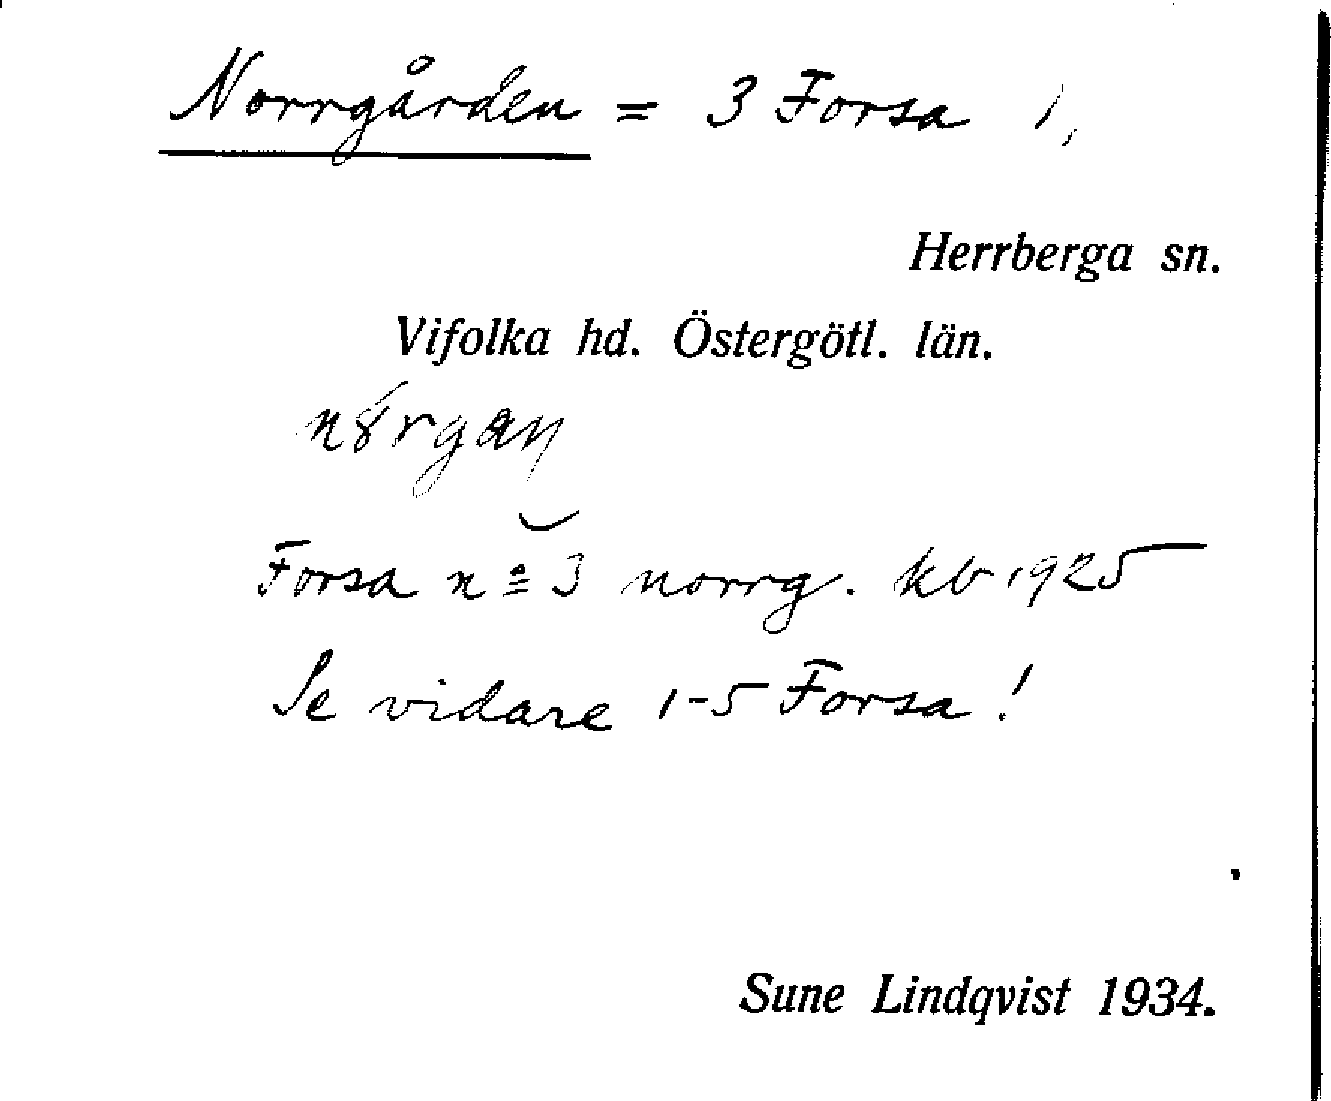 Norrgården = 3 Forsa 1,
Herrberga sn.
Vifolka hd. Östergötl. län.
Forsa nº 3 norrg. kb 1925
Se vidare 1-5 Forsa!
Sune Lindqvist 1934.